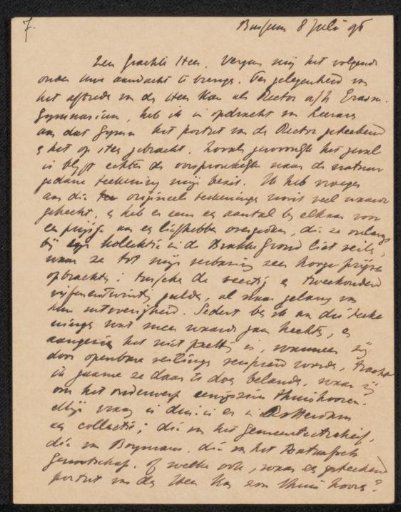 7.
Bussum 8 Juli 96
Zeer Geachte Heer, Vergun mij het volgende
onder uwe aandacht te brengen. Ter gelegenheid van
het aftreden van de Heer Kan als Rector a/h Erasm.
Gymnasium, heb ik in opdracht van Leeraren
aan dat Gymn. het portret van de Rector geteekend
& het op steen gebracht. Zooals gewoonlijk het geval
is blijft echter de oorspronkelijke naar de natuur
gedane teekening mijn bezit. Ik heb vroeger
aan die originele teekeningen nooit veel waarde
gehecht, & heb er eens een aantal bij elkaar voor
een prijsje aan een liefhebber overgedaan, die ze onlangs
bij zijn kollektie in de Brakke Grond liet veilen,
waar ze tot mijn verbazing zeer hooge prijzen
opbrachten: tusschen de veertig & tweehonderd
vijfentwintig gulden, al naar gelang van
hun uitvoerigheid. Sedert ben ik aan die teeke
ningen wat meer waarde gaan hechten, &
aangezien het niet prettig is, wanneer zij
door openbare veilingen verspreid worden, tracht
ik gaarne ze daar te doen belanden, waar zij
om het onderwerp eenigszins thuishooren.
Mijn vraag is deze: is er in Rotterdam
een collectie; die van het gemeentearchief,
die van Boymans, die van het Bataafsch
Genootschap, of welke ook, waar een geteekend
portret van den Heer Kan zou thuis hooren?